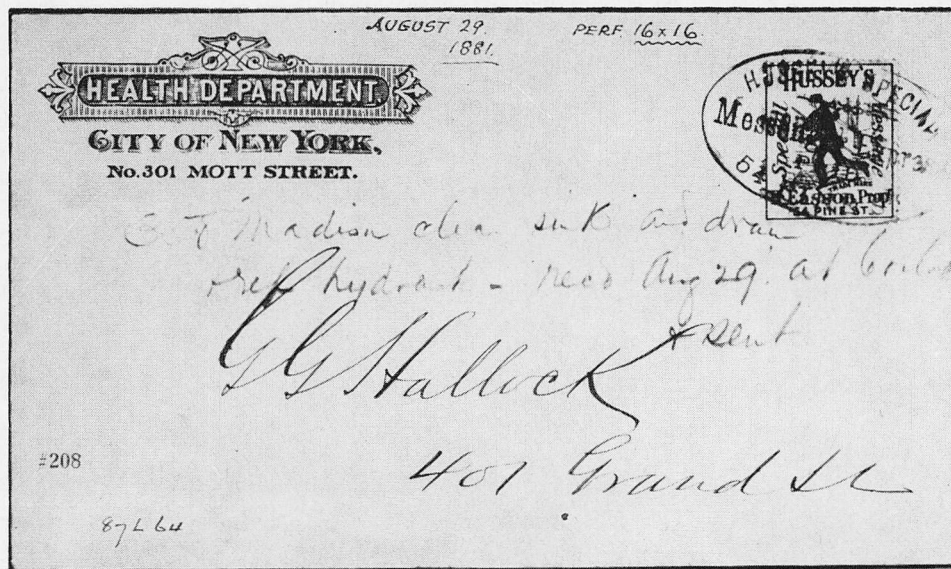 AUGUST 29.
1881.
PERF. 16 x 16.
HEALTH DEPARTMENT
CITY OF NEW YORK,
No. 301 MOTT STREET.
HUSSEY'S SPECIAL
HUSSEY'S
Special Message
Messen
54
Easson, Prop
54 PINE ST.
Madison clean sink and drain
hydrant - recd Aug 29. at 6 oclock
& sent
G G Hallock
401 Grand St
#208
87L64